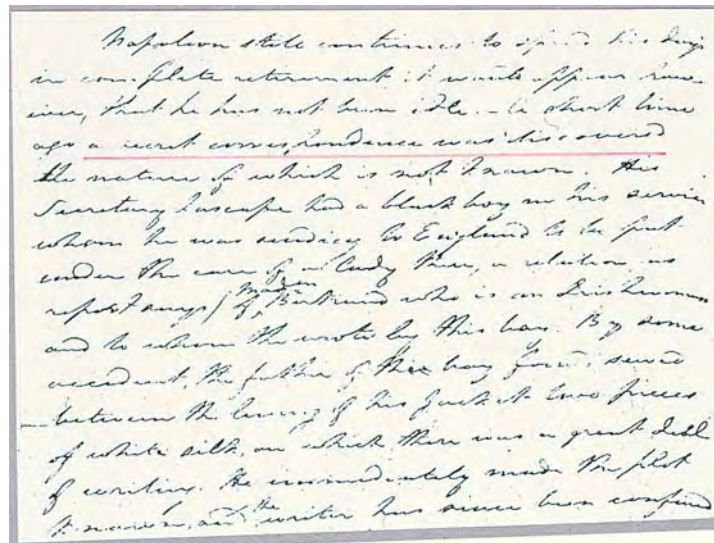 Napoleon still continues to spend his days
in complete retirement it would appear how-
ever, that he has not been idle. - A short time
ago a secret correspondence was discovered
the nature of which is not known. His
Secretary Lascape had a black boy in his service
whom he was sending to England to be put
under the care of a lady there, a relation as
report says, of Madam Bertrand who is an Irishwoman
and to whom he wrote by this boy. By some
accident the father of this boy found sewed
between the lining of his jacket two pieces
of white silk, on which there was a great deal
of writing. He immediately made the plot
known, and the writer has since been confined